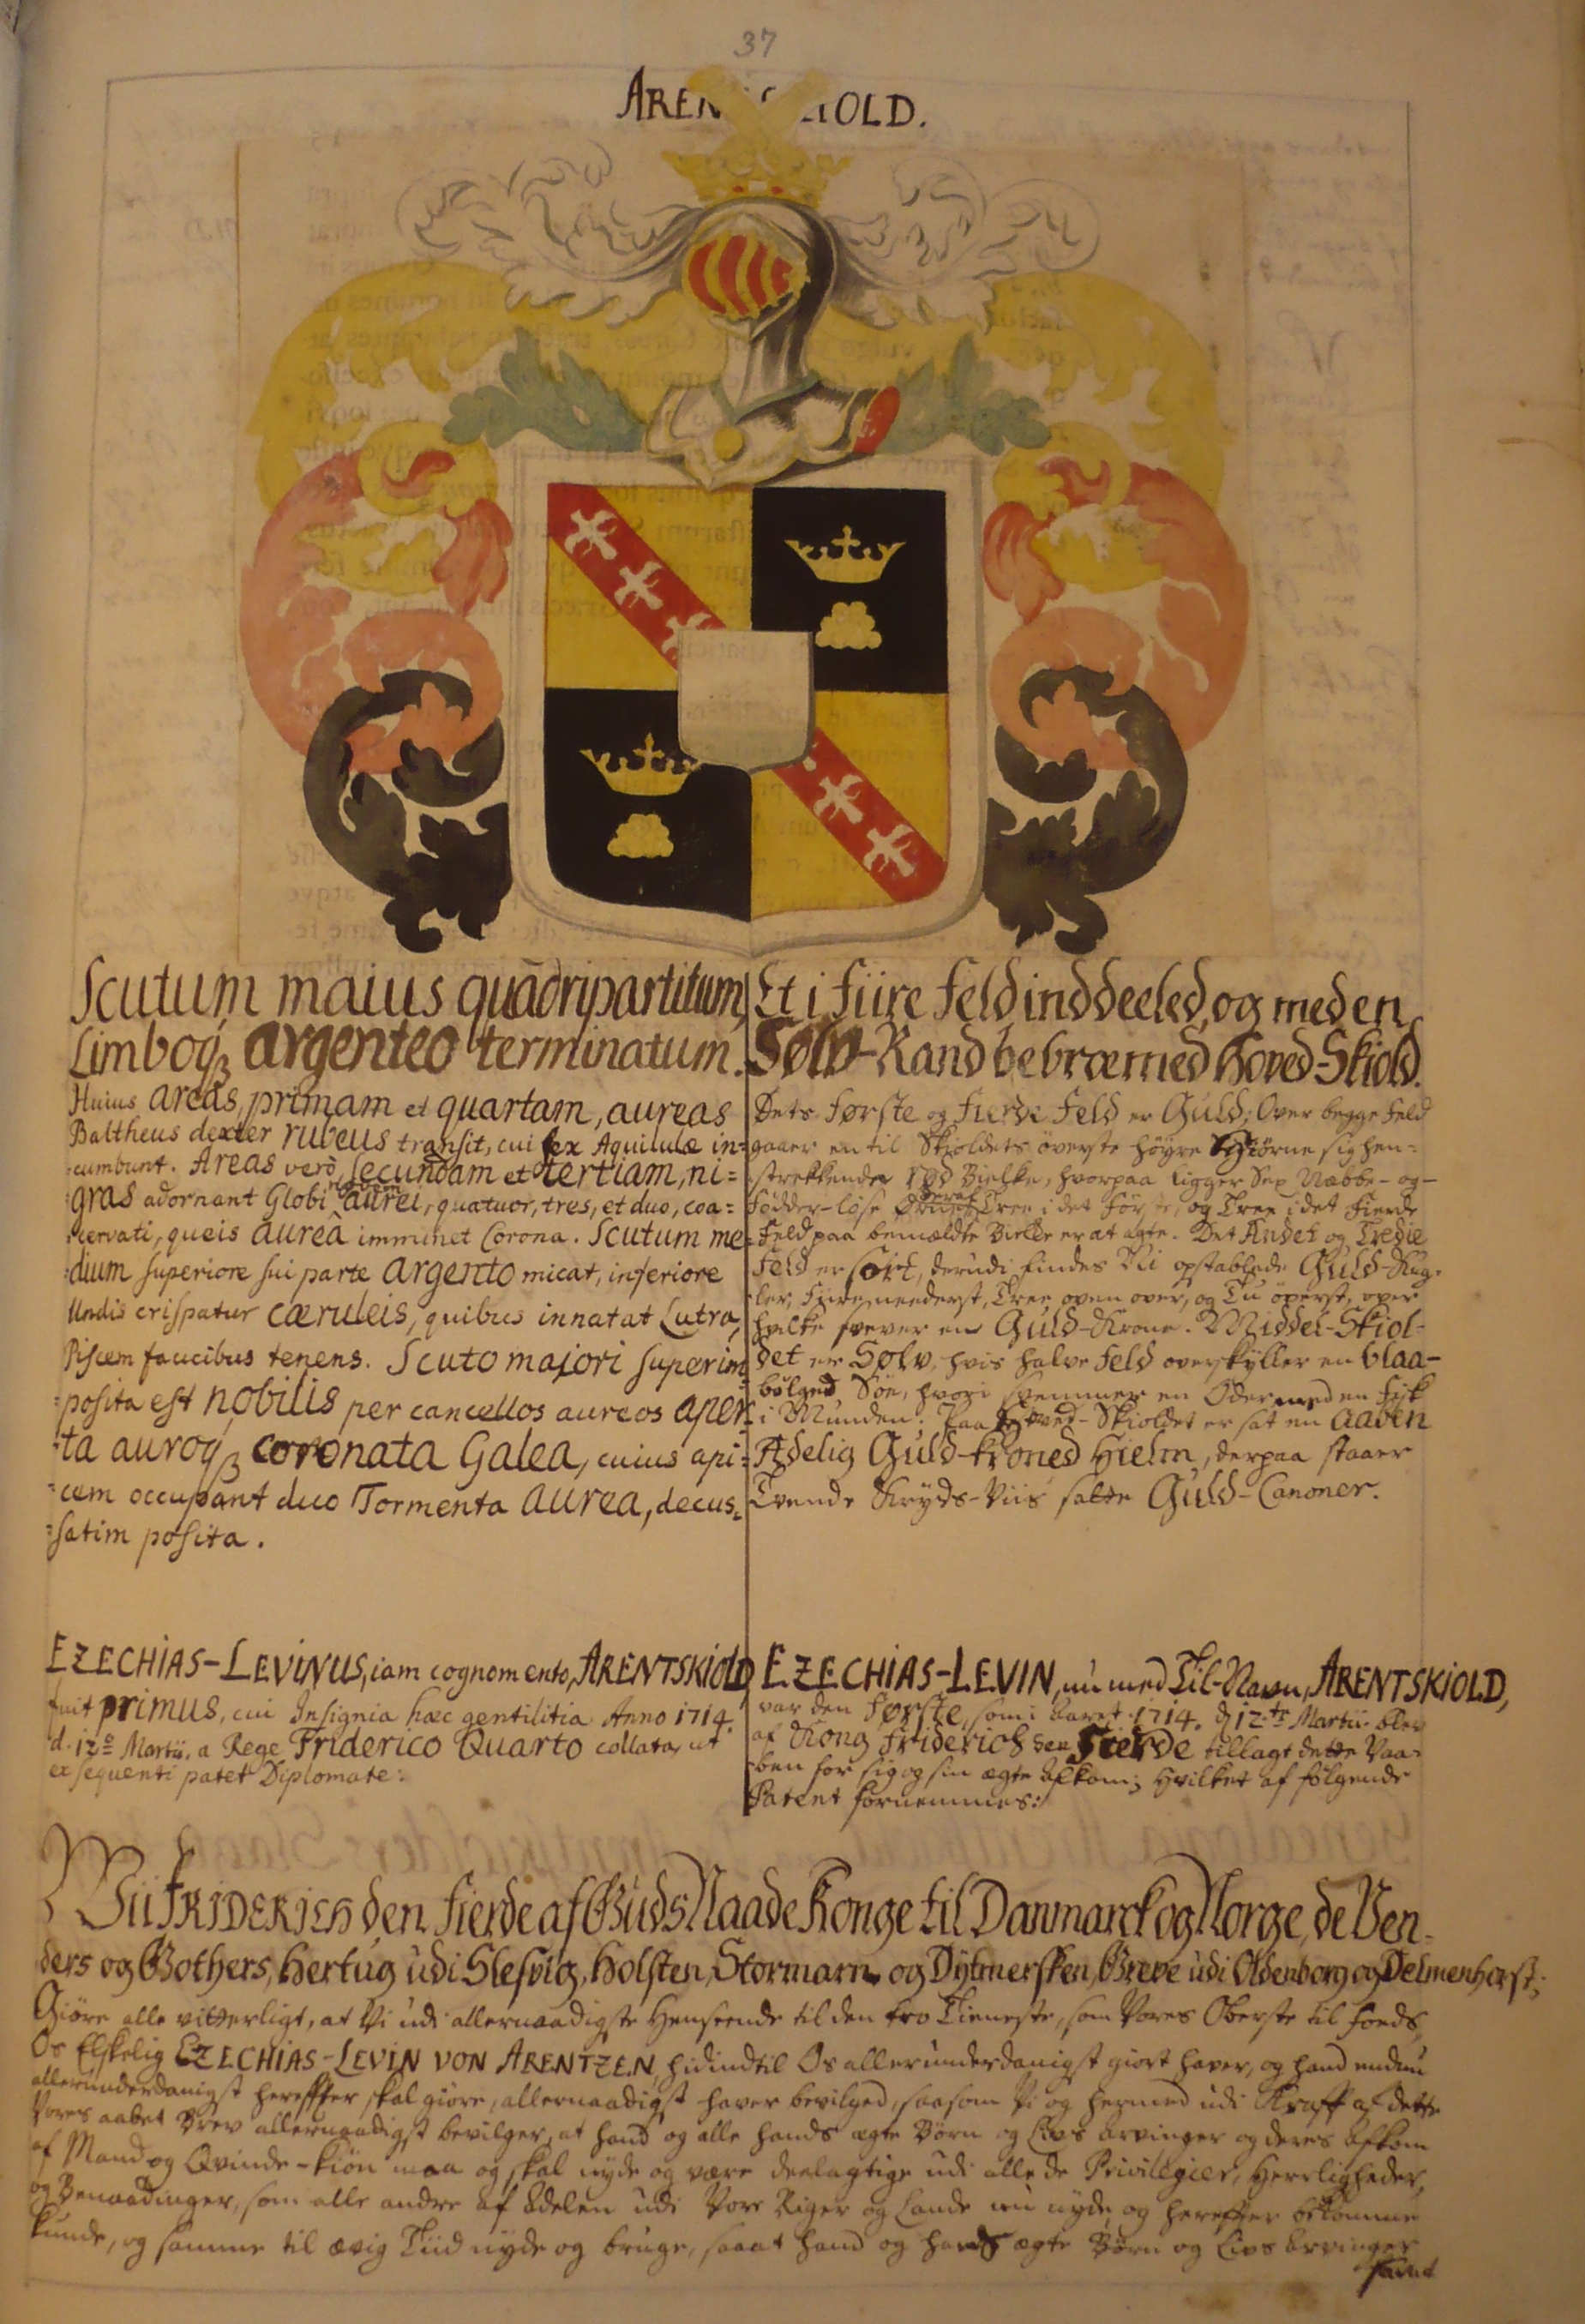 37
AREN OLD.
Scutum maius quadripartitum,
Limboq3 argenteo terminatum.
Huius areas, primam et quartam, aureas
Baltheus dexter rubeus transit, cui sex Aquilulæ in=
=cumbunt. Areas verò, secundam et tertiam, ni=
=gras adornant Globi aurei, quatuor, tres, et duo, coa=
=cervati, queis aurea imminet Corona. Scutum me=
=dium superiore sui parte argento micat, inferiore
Undis crispatur cæruleis, quibus innatat Lutra,
Piscem faucibus tenens. Scuto majori superim=
=posita est nobilis per cancellos aureos aper=
=ta auroq3 coronata Galea, cuius api=
=cem occupant duo Tormenta aurea, decus=
=satim posita.
Et i fiire Feld inddeeled, og med en
Sølv-Rand bebræmed Hoved-Skiold.
Dets Første og Fierde Feld er Guld; Over begge Feld
gaaer en til Skioldets överste höyre Hiörne sig hen=
=strekkende rød Bielke, hvorpaa ligger Sex Næbbe- og
Födder-løse Örne, deraf Tree i det Første, og Tree i det Fierde
Feld paa bemældte Bielke er at agte. Det Andet og Tredie
Feld er sort, derudi findes Nii opstablede Guld-Kug=
=ler, Fiire neederst, Tree oven over, og Tu överst, over
hvilke svever en Guld-Krone. Middel-Skiol=
det er Sølv, hvis halve Feld overskyller en blaa-
bölged Söe, hvori svemmer en Oder med en Fisk
i Munden. Paa Hoved-Skioldet er sat en aaben
Adelig Guld-kroned Hielm, derpaa staaer
Tvende Kryds-Viis satte Guld-Canoner.
EZECHIAS-LEVINUS, iam cognomento, ARENTSKIOLD,
fuit primus, cui Insignia hæc gentilitia Anno 1714.
d. 12o Martii. a Rege Friderico Quarto collata, ut
ex sequenti patet Diplomate:
EZECHIAS-LEVIN, nu med Til-Navn, ARENTSKIOLD,
var den Første, som i Aaret 1714. d 12te Martii blev
af Kong Friderich den Fierde tillagt dette Vaa=
ben for sig og sin ægte Afkom; Hvilket af følgende
Patent fornemmes:
Wii FRIDERICH den Fierde af Guds Naade Konge til Danmarck og Norge, de Ven=
ders og Gothers, Hertug udi Slesvig, Holsten, Stormarn og Dytmersken, Greve udi Oldenborg og Delmenhorst;
Giöre alle vitterligt, at Vi udi allernaadigste Henseende til den tro Tieneste, som Vores Oberste til Foeds,
Os Elskelig EZECHIAS-LEVIN VON ARENTZEN, hidindtil Os allerunderdanigst giort haver, og hand endnu
allerunderdanigst hereffter skal giøre, allernaadigst haver bevilged, saasom Vi og hermed udi Krafft af dette
Vores aabet Brev allernaadigst bevilger, at hand og alle hands ægte Børn og Livs Arvinger og deres Afkom
af Mand og Qvinde-kiön maa og skal nyde og være deelagtige udi alle de Privilegier, Herligheder,
og Benaadinger, som alle andre af Adelen udi Vore Riger og Lande nu nyde, og hereffter bekomme
kunde, og samme til ævig Tiid nyde og bruge, saa at hand og hands ægte Børn og Livs Arvinger
samt